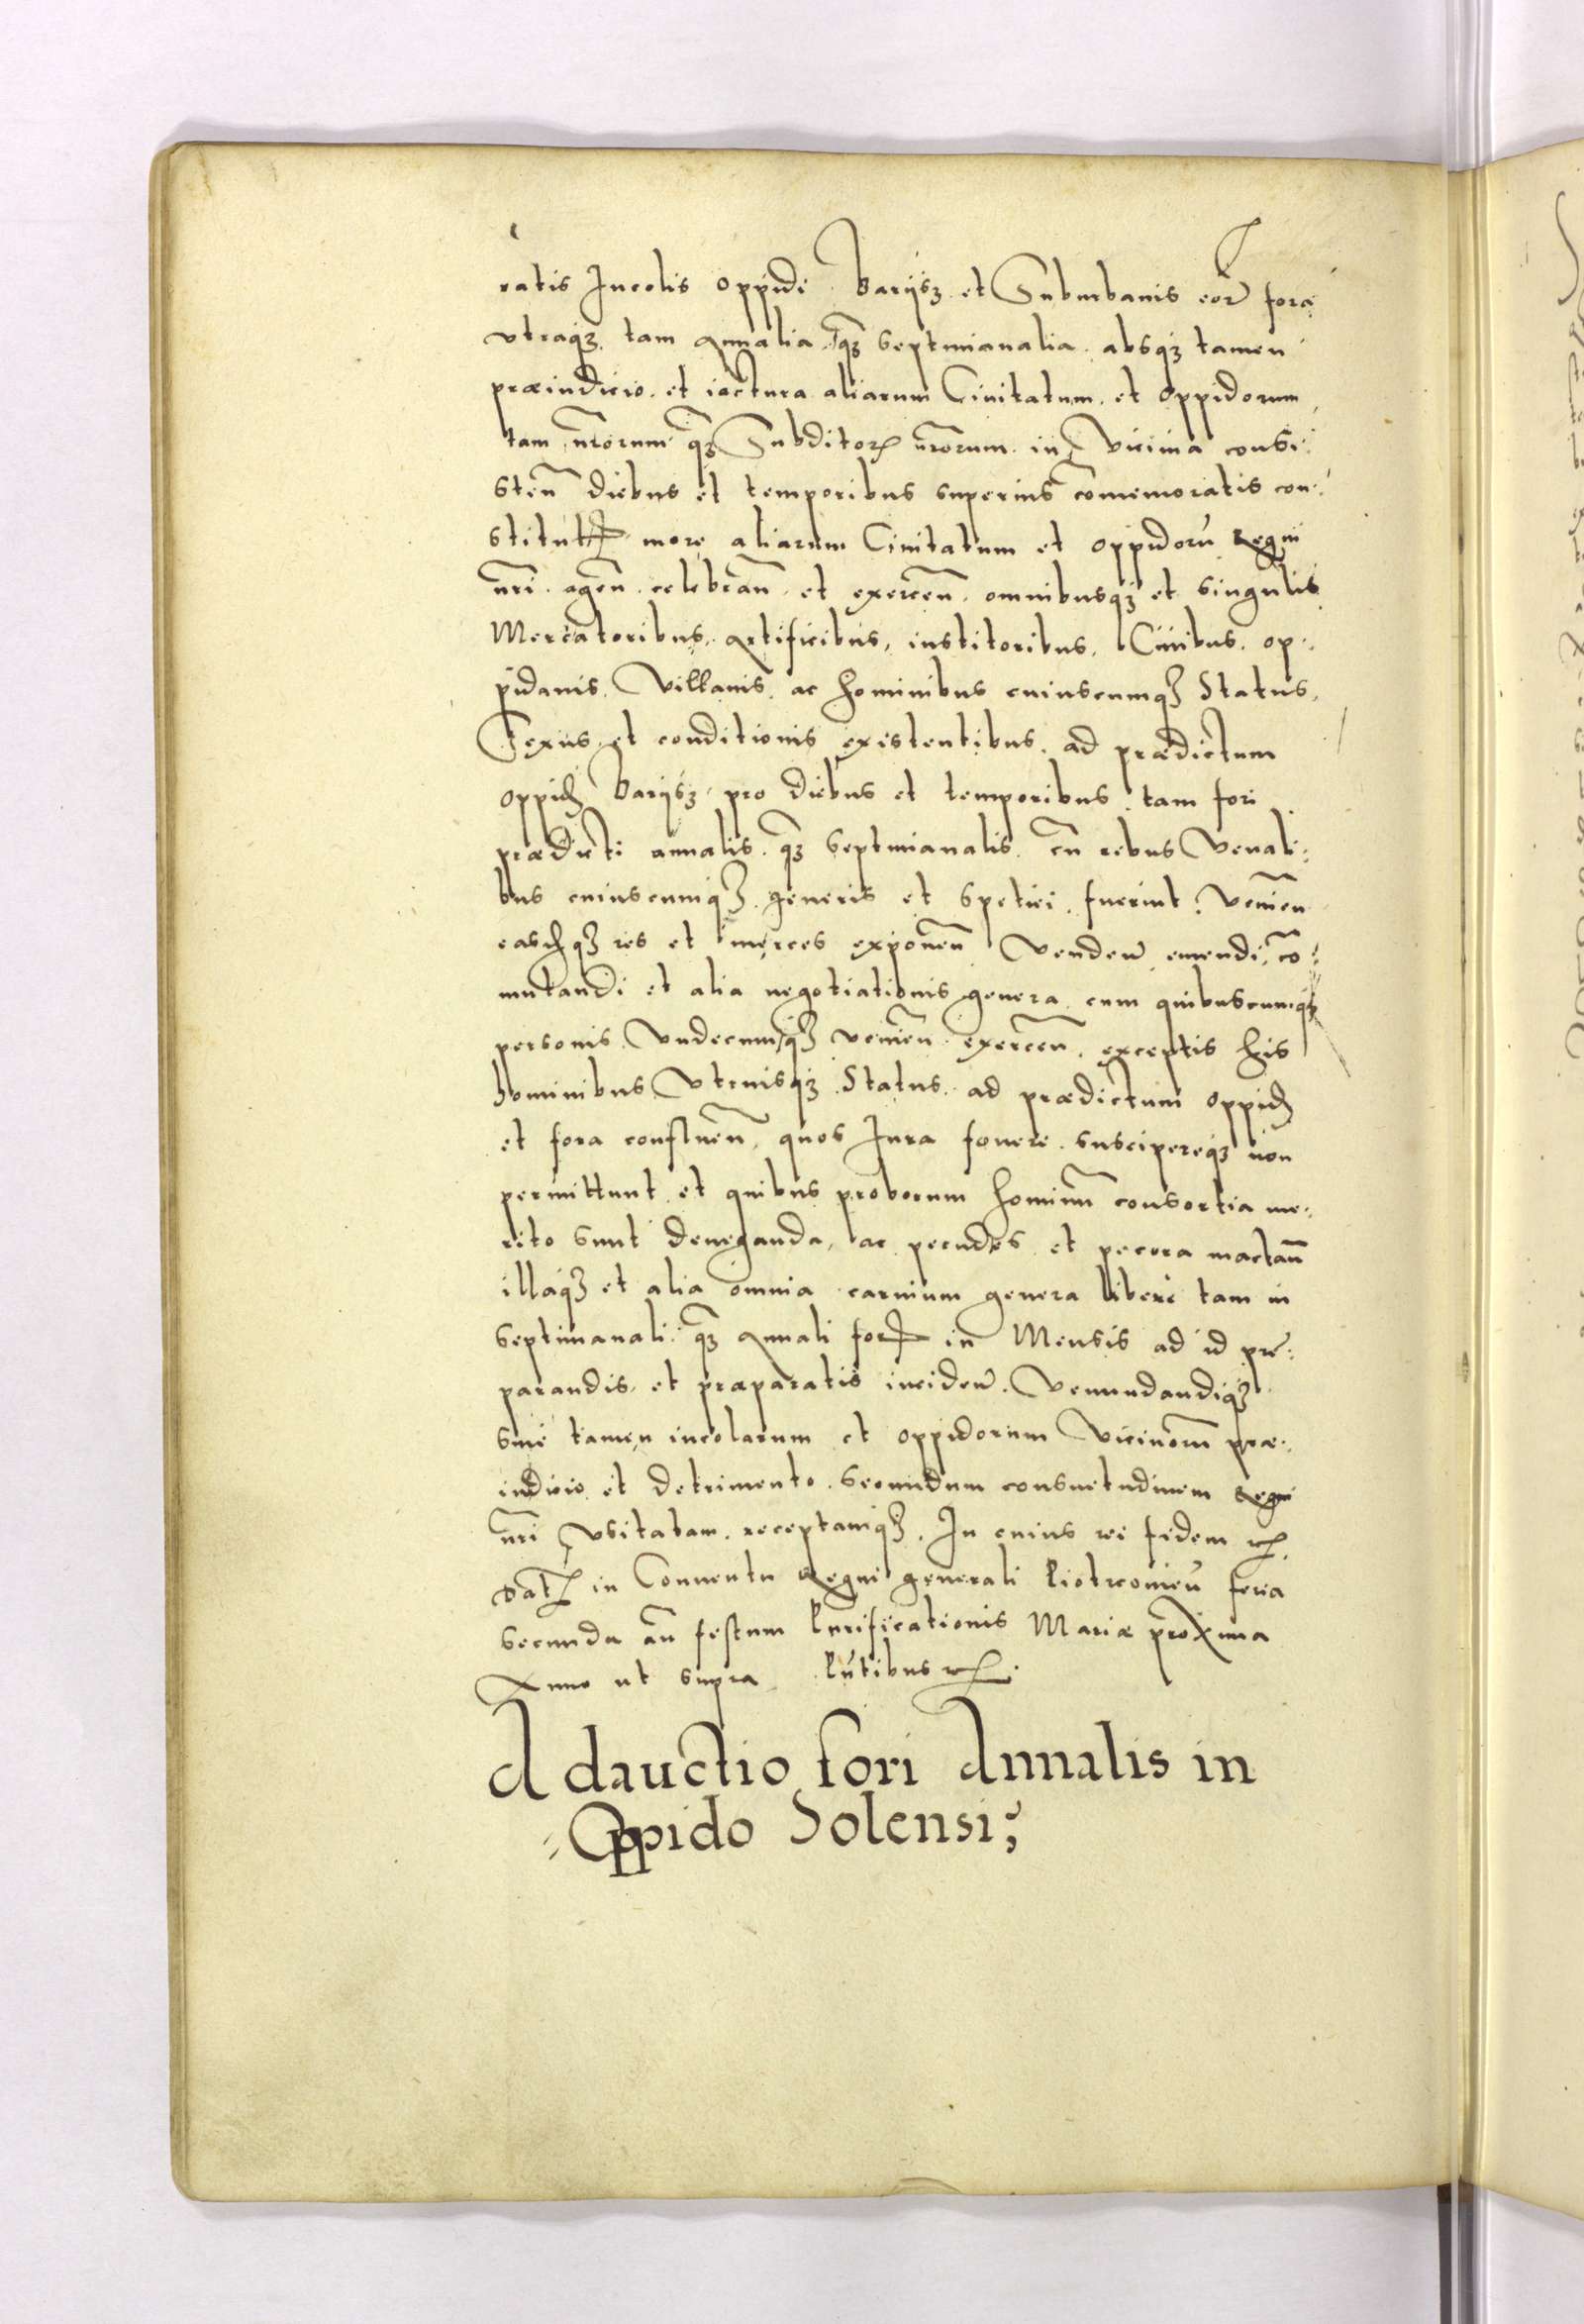 ratis Incolis oppidi Barijsz et Suburbanis eor̄ fora
vtraqz tam annalia qz̄ septimanalia absqz tamen
præiudicio et iactura aliarum Ciuitatum et Oppidorum
tam nr̄orum qz̄ Subditor nr̄orum in Vicinia consi:
sten̄ diebus et temporibus superius com̄emoratis con:
stitut more aliarum Ciuitatum et oppidorū Regni
nr̄i agen̄ celebran̄ et exercen̄ omnibusqz et singulis
Mercatoribus, artificibus, institoribus, Ciuibus, op:
pidanis, Villanis, ac hominibus cuiuscumqz Status,
Sexus et conditionis existentibus, ad prædictum
oppid Barijsz pro diebus et temporibus tam fori
prædicti annalis qz̄ septimanalis cū rebus Venali:
bus cuiuscumqz generis et spetiei fuerint Venien̄
easdqz res et merces exponen̄ Venden̄ emendi, com̄:
mutandi et alia negotiationis genera cum quibuscumqz
personis Vndecumqz venien̄ exercen̄, exceptis his
hominibus Vtriusqz Status ad prædictum oppid
et fora confluen̄, quos Iura fouere suscipereqz non
permittunt et quibus proborum hominū consortia me:
rito sunt deneganda, ac pecudes et pecora mactan̄
illaqz et alia omnia carnium genera libere tam in
septimanali qz̄ annali for in Mensis ad id præ:
parandis et præparatis inciden̄ Venundandiqz
sine tamen incolarum et oppidorum Vicinorum præ:
iudicio et detrimento secundum consuetudinem Regni
nr̄i vsitatam receptamqz. In cuius rei fidem etc.
Dat in Conuentu Regni generali Piotrcouien̄ feria
secunda an̄ festum Purificationis Mariæ proxima
Anno ut supra Pn̄tibus etc.
Adauctio fori Annalis in
Oppido Solensi;